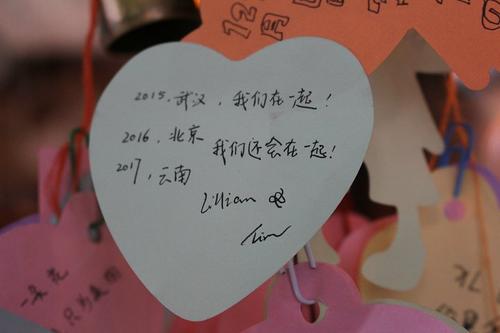 2015.武汉，我们在一起！
2016.北京
我们还会在一起！
2017，云南
Lillian &
Tim
一朵花
只为美图